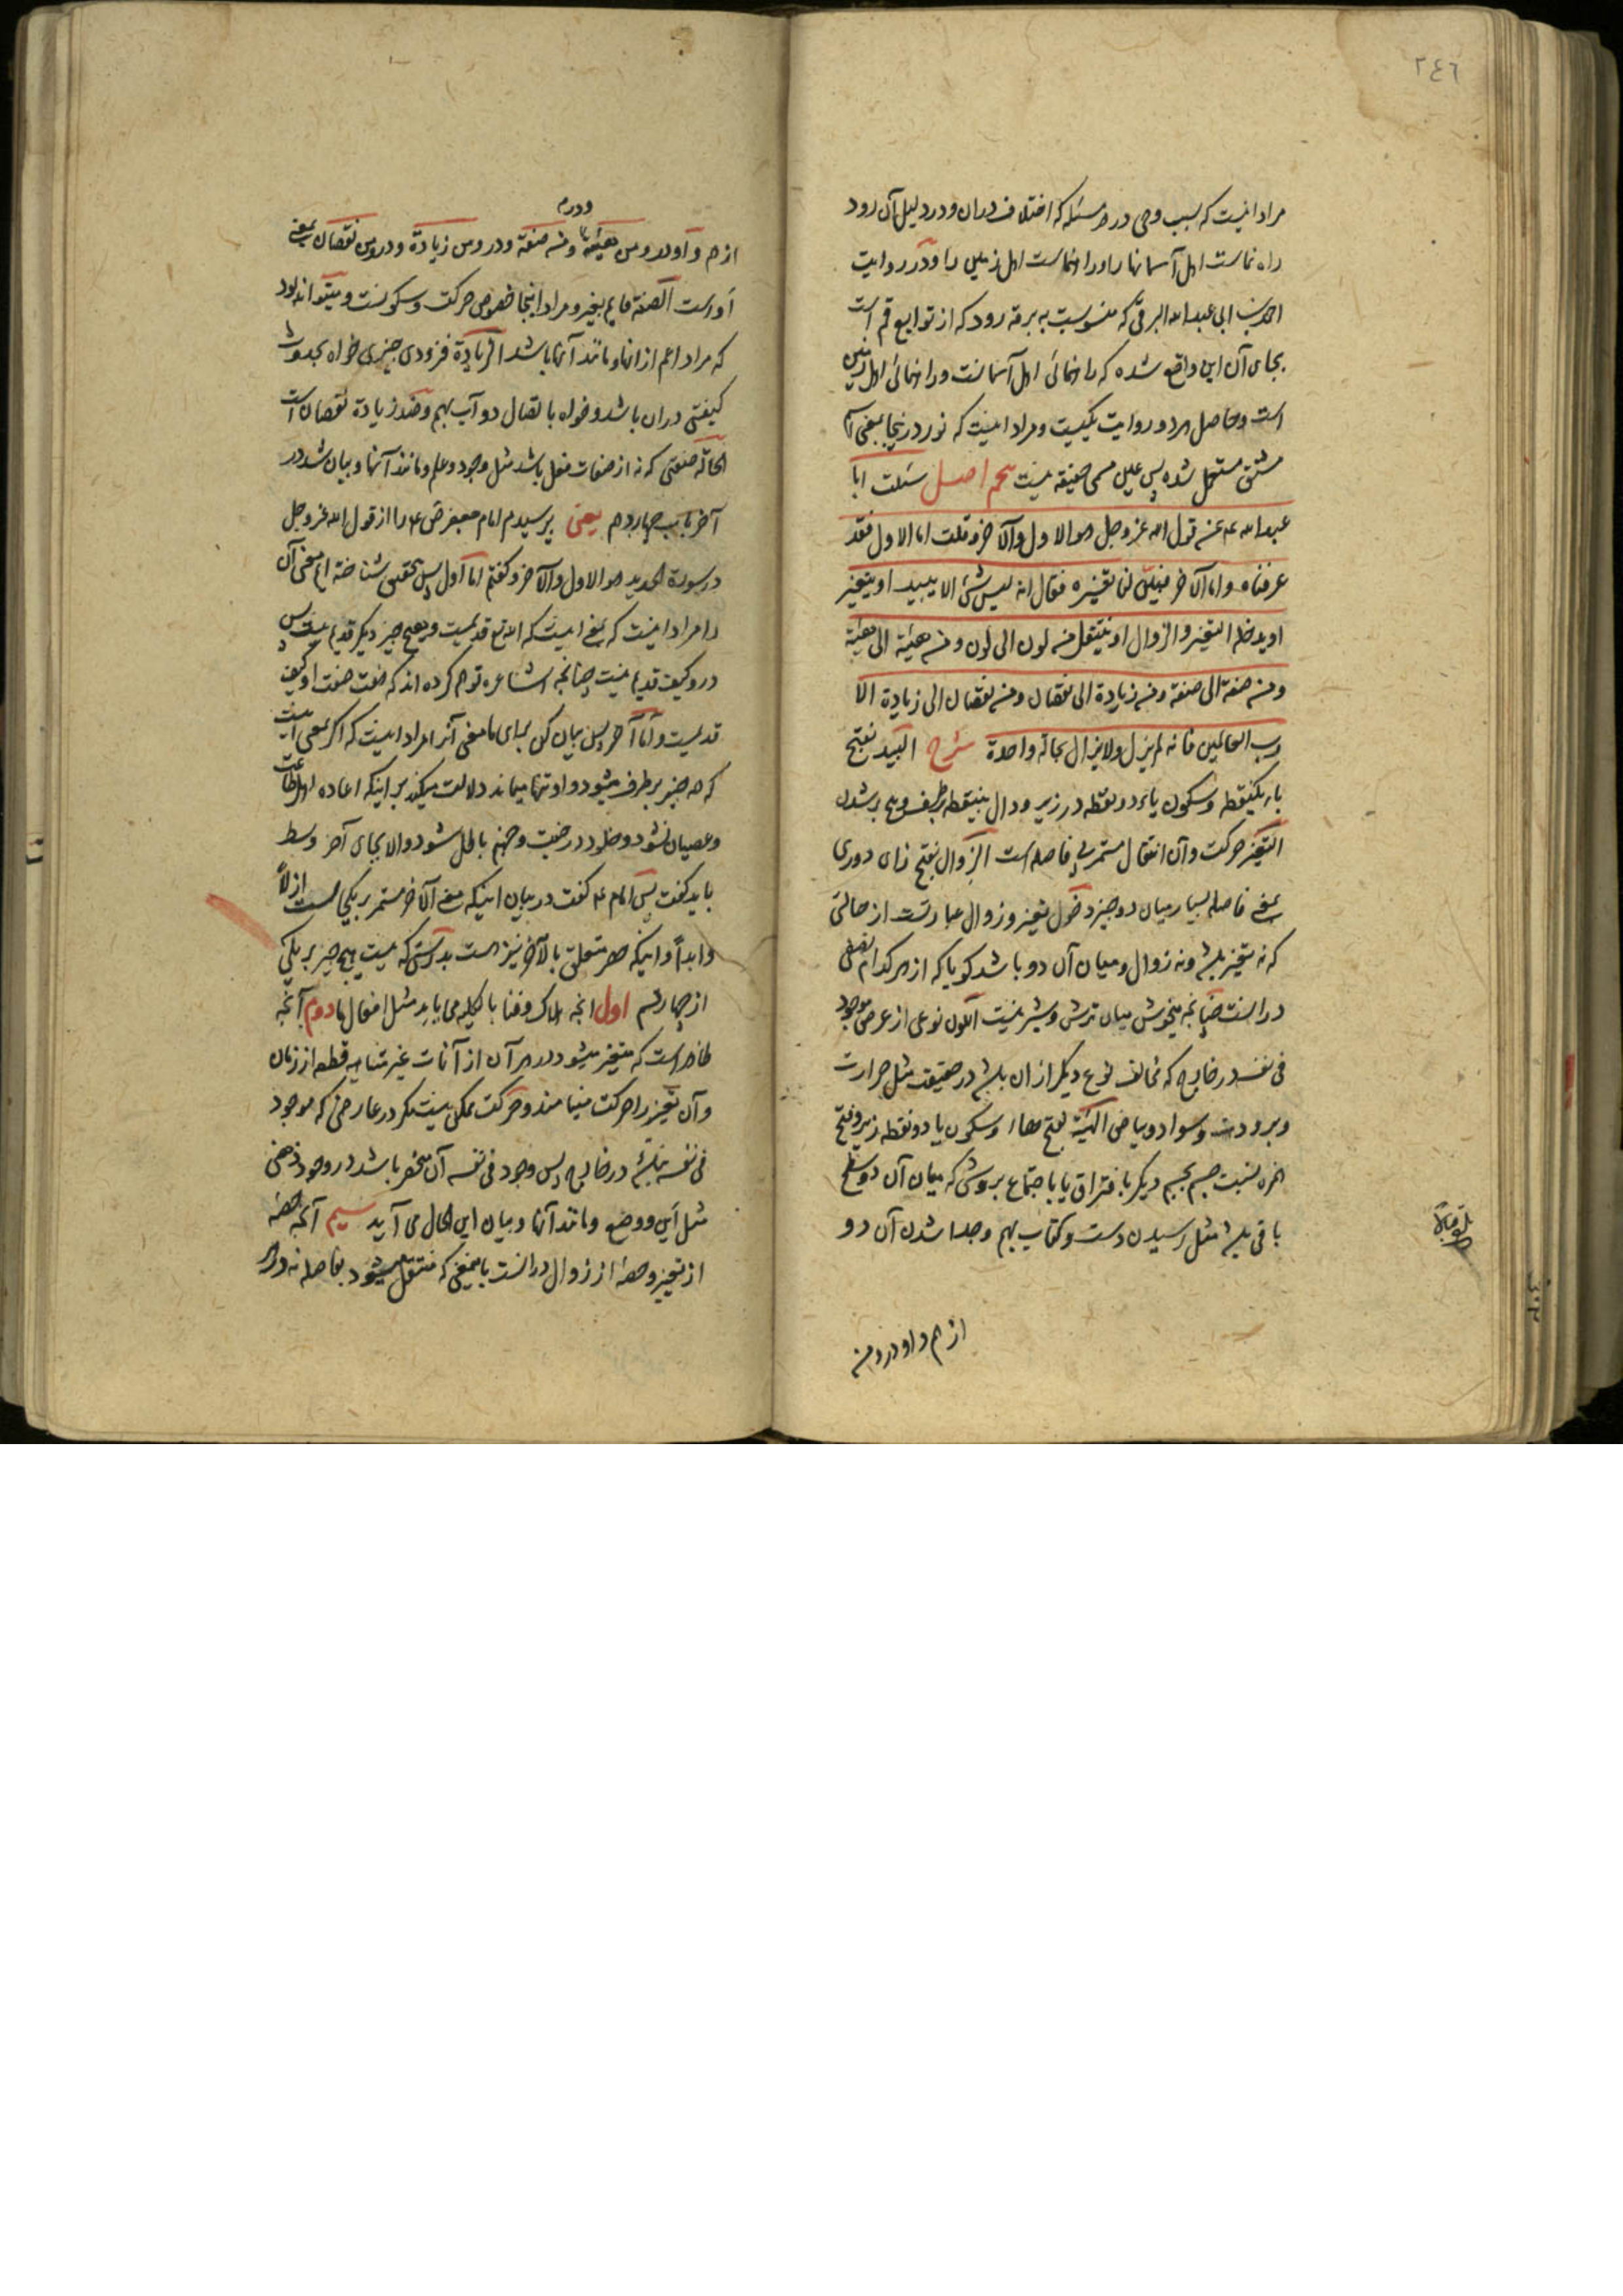 ٢٤٦
مراد اینست که بسبب وحی در هر مسئله که اختلاف دران و در دلیل آن رود
راه نماست اهل آسمانها را و راه نماست اهل زمین را و در روایت
احمد بن ابی عبد الله البرقی که منسوبست به برقه رود که از توابع قم است
بجای آن این واقع شده که راهنمائی اهل آسمانست و راهنمائی اهل زمین
است و حاصل هر دو روایت یکیست و مراد اینست که نور درینجا بمعنی اسم
مشتق مستعمل شده پس عین مسمی حقیقة نیست پنجم اصل سئلت ابا
عبد الله ع عن قول الله عز وجل هو الاول والآخر و قلت اما الاول فقد
عرفناه و اما الآخر فبین لنا تفسیره فقال انه لیس شیء الا یبید او یتغیر
او یدخله التغیر والزوال او ینتقل من لون الی لون و من هیئة الی هیئة
و من صفة الی صفة و من زیادة الی نقصان و من نقصان الی زیادة الا
رب العالمین فانه لم یزل ولا یزال بحالة واحدة شرح البید بفتح
باء یکنقطه و سکون یاء دو نقطه در زیر و دال بینقطه برطرف و هیچ بر شدن
التغیر حرکت و آن انتقال مستمر بی فاصله است الزوال بفتح زای دوری
یعنی فاصله بسیار میان دو چیز دخول تغیر و زوال عبارتست از حالتی
که نه تغیر باشد و نه زوال و میان آن دو باشد کویا که از هر کدام نصفی
درانست چنانچه میخوش میان ترش و شیرینست اللون نوعی از عرض موجود
فی نفسه در خارج که مخالف نوع دیکر ازان باشد در حقیقت مثل حرارت
و برودت و سواد و بیاض الهیئة بفتح هاء و سکون یا دو نقطه زیر و فتح
همزه نسبت جسم بجسم دیکر بافتراق یا باجتماع بروشی که میان آن دو سطح
باقی باشد مثل رسیدن دست و کتاب بهم و جدا شدن آن دو
بلغ قبالا
از هم و او در و من
و در م
از هم و او در و من هیئة و من صفة و در و من زیادة و در و من نقصان بمعنی
او است الصفة قایم بغیر و مراد اینجا خصوص حرکت و سکونست و میتواند بود
که مراد اعم از انها و مانند آنها باشد الزیادة فزودی چیزی خواه بحدوث
کیفیتی دران باشد و خواه باتصال دو آب بهم و ضد زیادة نقصان است
الحالة صفتی که نه از صفات فعل باشد مثل وجود و علم و مانند آنها و بیان شد در
آخر باب چهاردهم یعنی پرسیدم امام جعفر ص ع را از قول الله عز وجل
در سورة الحدید هو الاول والآخر و کفتم اما اول پس بتحقیق شناخته ایم معنی آن
را مراد اینست که یعنی اینست که الله تع قدیمست و هیچ چیز دیکر قدیم نیست پس
درو کیف قدیم نیست چنانچه اشاعره توهم کرده اند که صفت صفت او کیف
قدیمست و اما آخر پس بیان کن برای ما معنی آنرا مراد اینست که اکر معنی اینست
که هر چیز برطرف میشود و او تنها میماند دلالت میکند بر اینکه اعاده اهل طاعت
و عصیان نشود و خلود در جنت و جهنم باطل شود و الا بجای آخر وسط
باید کفت پس امام ع کفت در بیان اینکه معنی الآخر مستمر بر یکجا است ازلاً
و ابداً و اینکه حصر متعلق بالآخر نیز هست بدرستی که نیست هیچ چیز بر یکی
از چهار قسم اول انچه هلاک و فنا بالکلیه می یابد مثل افعال ما دوم آنچه
ظاهر است که متغیر میشود در هر آن از آنات غیر متناهیه قطعه از زمان
و آن تغیر را حرکت مینامند و حرکت ممکن نیست مکر در عارضی که موجود
فی نفسه نباشد در خارج پس وجود فی نفسه آن منحصر باشد در وجود ذهنی
مثل أین و وضع و مانند آنها و بیان این الحال می آید سیم آنچه حصه
از تغیر و حصه از زوال درانست بامعنی که منتقل میشود بفاصله نه در هر